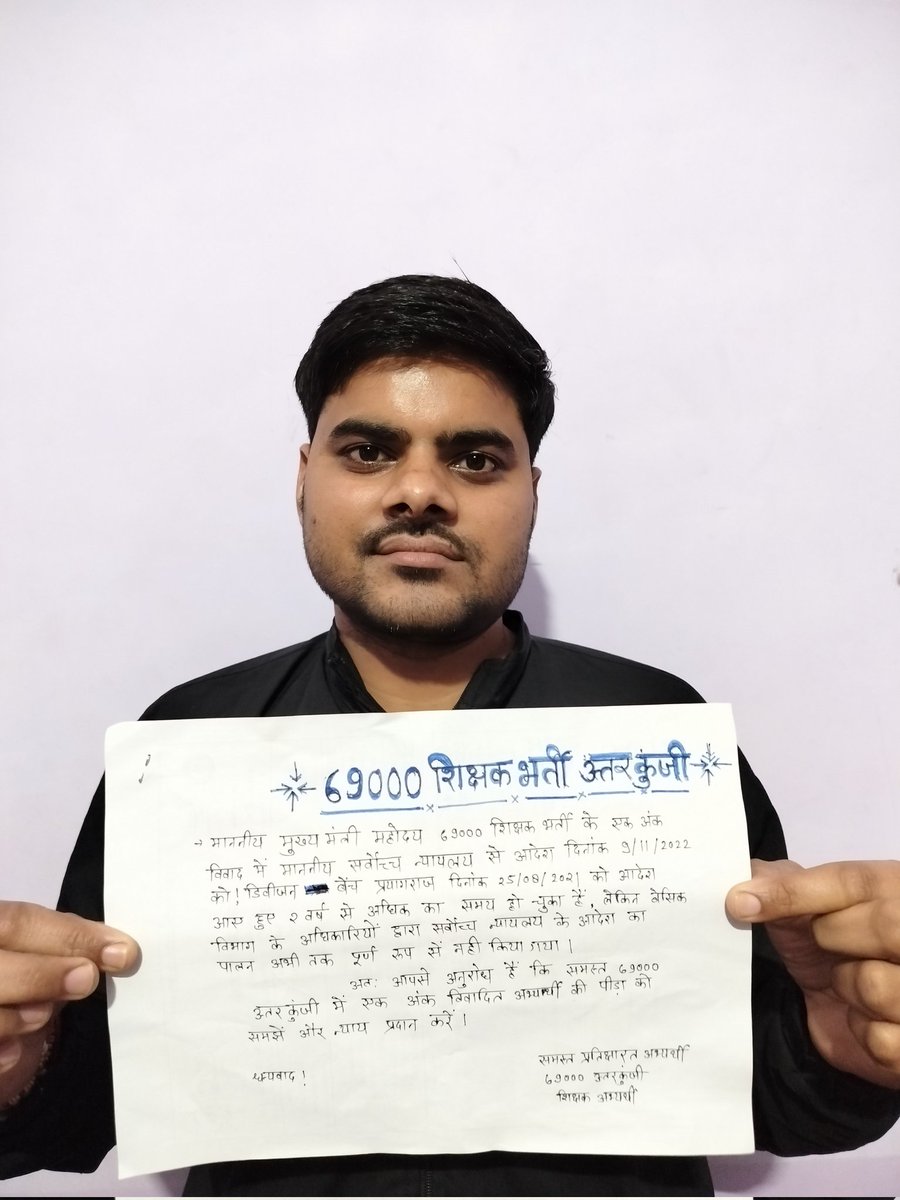 69000 शिक्षक भर्ती उत्तर कुंजी
→ माननीय मुख्य मंत्री महोदय 69000 शिक्षक भर्ती के एक अंक
विवाद में माननीय सर्वोच्च न्यायलय से आदेश दिनांक 9/11/2022
को! डिवीजन बेंच प्रयागराज दिनांक 25/08/2021 को आदेश
आए हुए २ वर्ष से अधिक का समय हो चुका हैं, लेकिन बेसिक
विभाग के अधिकारियों द्वारा सर्वोच्च न्यायलय के आदेश का
पालन अभी तक पूर्ण रूप सें नही किया गया।
अतः आपसे अनुरोध हैं कि समस्त 69000
उतर कुंजी में एक अंक विवादित अभ्यर्थी की पीड़ा को
समझें और न्याय प्रदान करें।
धन्यवाद!
समस्त प्रतिक्षारत अभ्यर्थी
69000 उतरकुंजी
शिक्षक अभ्यर्थी